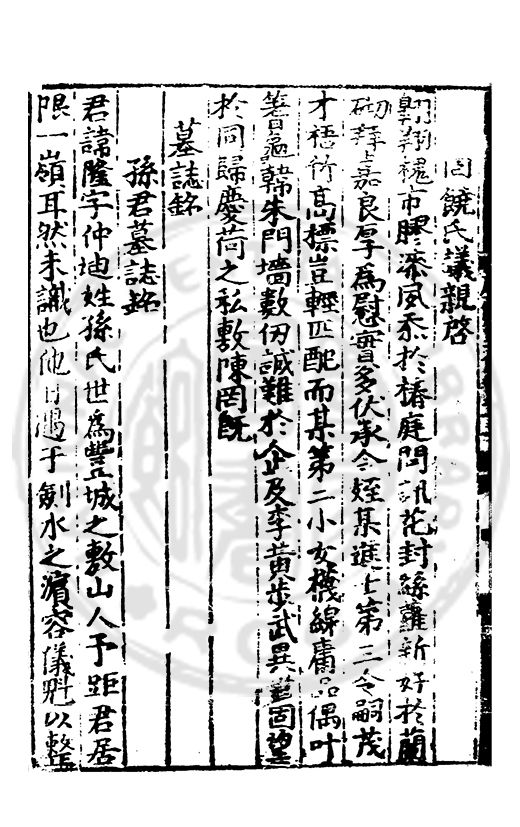 回饒氏議親啓
翱翔槐市膠漆風忝於椿庭問訊花封絲蘿新好於蘭
砌拜上嘉良厚爲慰曾多伏承令姪某進士第三令嗣茂
才梧竹高標豈輕匹配而某第二小女機線庸品偶叶
蓍龜韓朱門墻數仞誠難於企及李黄步武異嘗固望
於同歸慶荷之私敷陳罔既
墓誌銘
孫君墓誌銘
君諱隆字仲迪姓孫氏世爲豐城之敷山人予距君居
限一嶺耳然未識也他日遇于劍水之濵容儀魁以整